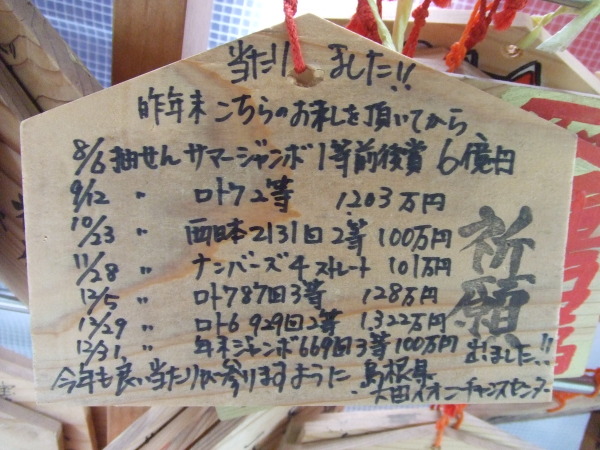 当たりました!!
昨年末こちらのお札を頂いてから
8/6 抽せん サマージャンボ1等前後賞 6億円
9/12 〃 ロト7 2等 1203万円
10/23 〃 西日本2131回2等 100万円
11/28 〃 ナンバーズ4ストレート 101万円
12/5 〃 ロト7 87回3等 128万円
12/29 〃 ロト6 929回2等 1,322万円
12/31 〃 年末ジャンボ669回3等100万円 出ました!!
今年も良い当たりが参りますように
島根県
大田イオンチャンスセンター
祈願